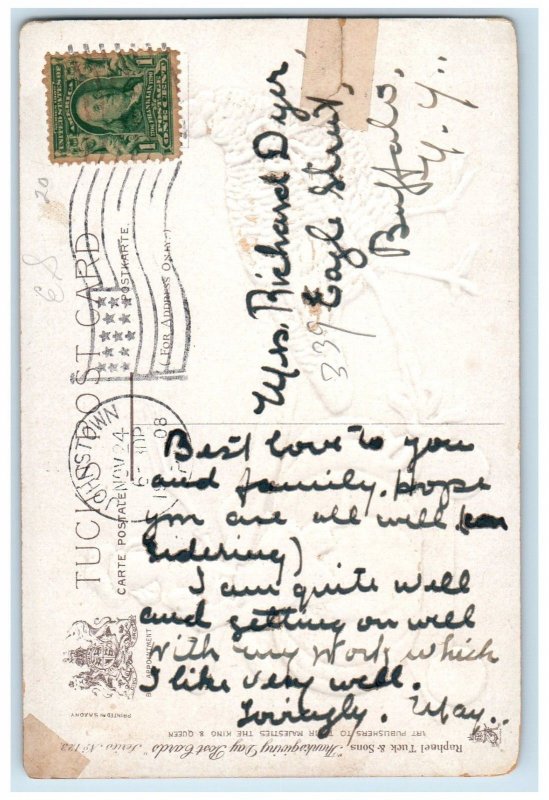 UNITED STATES OF AMERICA
POSTAGE
ONE CENT
1 1
20
TUCK'S POST CARD
CARTE POSTALE
POSTKARTE.
(FOR ADDRESS ONLY.)
JOHNSTOWN
NOV 24
08
Mrs. Richard Dyer,
339 Eagle Street,
Buffalo,
N. Y.
Best love to you
and family. Hope
you are all well (con
sidering)
I am quite well
and getting on well
with my work which
I like very well.
Lovingly. May..
BY APPOINTMENT
PRINTED IN SAXONY
Raphael Tuck & Sons, "Thanksgiving Day Post Cards" Series No 123
ART PUBLISHERS TO THEIR MAJESTIES THE KING & QUEEN